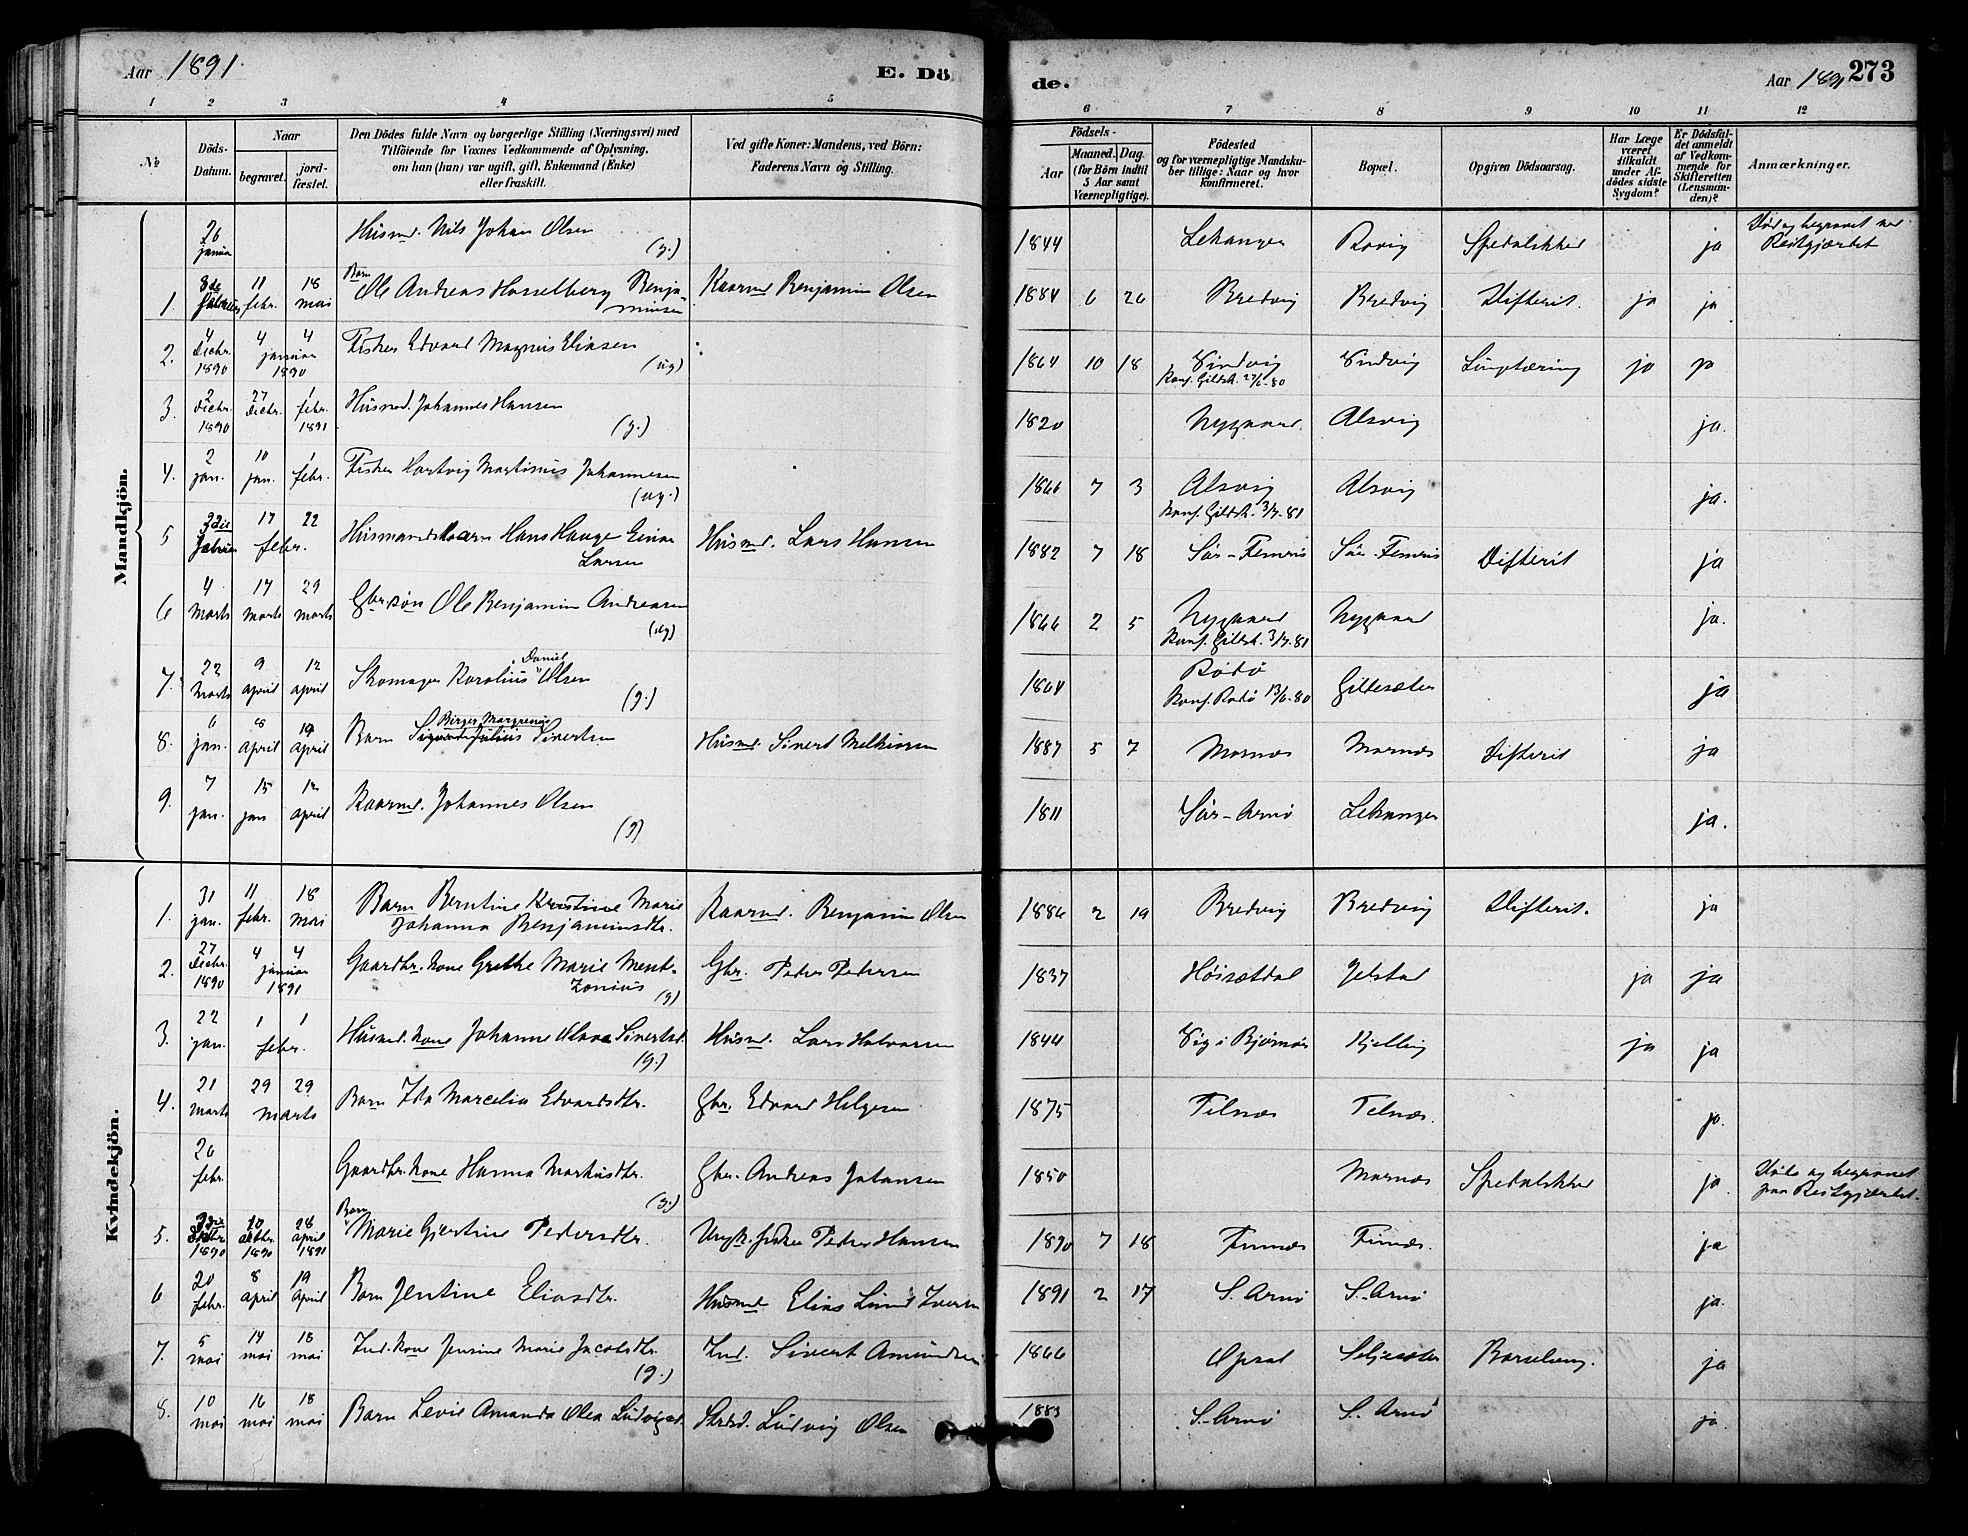 Aar 1891.
E. Dö
de.
Aar 1891
273
1 2 3 4 5 6 7 8 9 10 11 12
No
Döds-Datum.
Naar
begravet.
jord-fæstet.
Den Dödes fulde Navn og borgerlige Stilling (Næringsvei) med
Tilföiende for Voxnes Vedkommende af Oplysning,
om han (hun) var ugift, gift, Enkemand (Enke)
eller fraskilt.
Ved gifte Koner: Mandens, ved Börn:
Faderens Navn og Stilling.
Födsels-
Aar
Maaned. Dag.
(for Börn indtil
5 Aar samt
Værnepligtige).
Födested
og for værnepligtige Mandsku-
ber tillige: Naar og hvor
konfirmeret.
Bopæl.
Opgiven Dödsaarsag.
Har Læge
været
tilkaldt
under Af-
dödes sidste
Sygdom?
Er Dödsfal-
det anmeldt
af Vedkom-
mende for
Skifteretten
(Lensman-
den)?
Anmærkninger.
Mandkjön.
26 januar Husmd. Nils Johan Olsen (g.) 1844 Lekanger Spedalskhed ja
1. februar 11 febr. 18 mai Barn Ole Andreas Hasselberg Benja-
minsen Kaarmd. Benjamin Olsen 1884 6 26 Bredvig Bredvig Difterit. ja ja
2. 4 Decbr. 1890 4 4 januar 1890 Fisker Edvard Magnus Eliasen (ug) 1864 10 18 Vindvig Konf. Gildsk. 27/6-80 Vindvig Lungtæring ja ja
3. 2 Decbr. 1890 27 Decbr. 1 febr. 1891 Husmd. Johannes Hansen (g.) 1820 Nygaard Alsvig ja.
4. 2 jan. 10 jan. 1 febr. Fisker Hartvig Martinus Johannesen (ug.) 1866 7 3 Alsvig Konf. Gildsk. 3/7-81 Alsvig ja.
5 februar 17 22 febr. Husmandsbarn Hans Hauge Einar
Larsen Husmd. Lars Hansen 1882 7 18 Sör-Femris Sör-Femris Difterit ja
6 4 Marts 17 marts 29 marts Gbr. sön Ole Benjamin Andreasen (ug) 1866 2 5 Nygaard Konf. Gildsk. 3/7-81 Nygaard ja.
7. 22 Marts 9 april 12 april Skomager Karolius Daniel Olsen (g.) 1864 Rödö Konf. Rödö 13/6-80 Gildesæter ja
8. 6 jan. 8 april 19 april Barn Birger Margrenus Sivertsen Husmd. Sivert Melkiorsen 1887 5 7 Mornæs Mornæs Difterit ja
9. 7 jan. 15 jan 12 april Kaarmd. Johannes Olsen (g) 1811 Sör-Arnö Lekanger ja.
Kvindekjön.
1. 31 jan. 11 febr. 18 Mai Barn Berntine Kristine Marie
Johanna Benjaminsdtr. Kaarmd. Benjamin Olsen 1886 2 19 Bredvig Bredvig Difterit. ja
2. 27 Decbr. 1890 4 4 januar 1891 Gaardbr. kone Grethe Marie Ment-
zonius (g) Gbr. Peder Pedersen 1837 Höisætdal Jelstad ja ja
3. 22 jan. 1 1 febr. Husmd. kone Johanne Olava Sivertsd. (g.) Husmd. Lars Halvorsen 1844 Vig i Bjørnör Kjelling ja ja
4. 21 marts 29 29 marts Barn Ida Marcelia Edvardsdtr. Gbr. Edvard Helgesen 1875 Telnæs Telnæs. ja.
26 febr. Gaardbr. kone Hanna Markusdtr. (g.) Gbr. Andreas Johansen 1850 Mornæs Spedalskhed ja. Död og begravet
paa Reitgjærdet.
5. 1890 20 1890 28 april 1891 Barn Marie Gjertine Pedersdtr. Ungk. fisker Peder Hansen 1890 7 18 Finnæs Finnæs. ja
6 20 febr. 8 april 19 april Barn Jentine Eliasdtr. Husmd Elias Lund Iversen 1891 2 17 S. Arnö S. Arnö ja.
7. 5 mai 14 mai 18 mai Ind. kone Jensine Marie Jacobsdtr. (g.) Ind. Sivert Amundsen 1866 Opsal Barselseng. ja
8. 10 mai 16 mai 18 mai Barn Levie Amanda Olea Ludvigsd. Ludvig Olsen 1883 S. Arnö S. Arnö ja